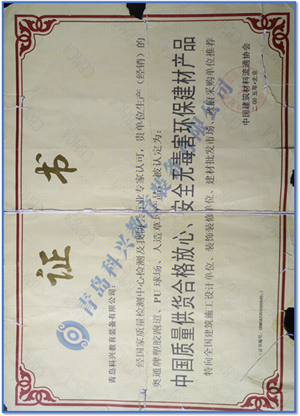 证书
青岛科兴教育装备有限公司:
经国家质量检测中心检测及我协会专业专家认可，贵单位生产（经销）的
奥通摩塑胶跑道、PU球场、人造草坪产品被认定为:
中国质量供货合格放心、安全无毒害环保建材产品
特向全国建筑施工设计单位、装饰装修单位、建材批发市场、政府采购单位推荐
中国建筑材料流通协会
二00五年·北京